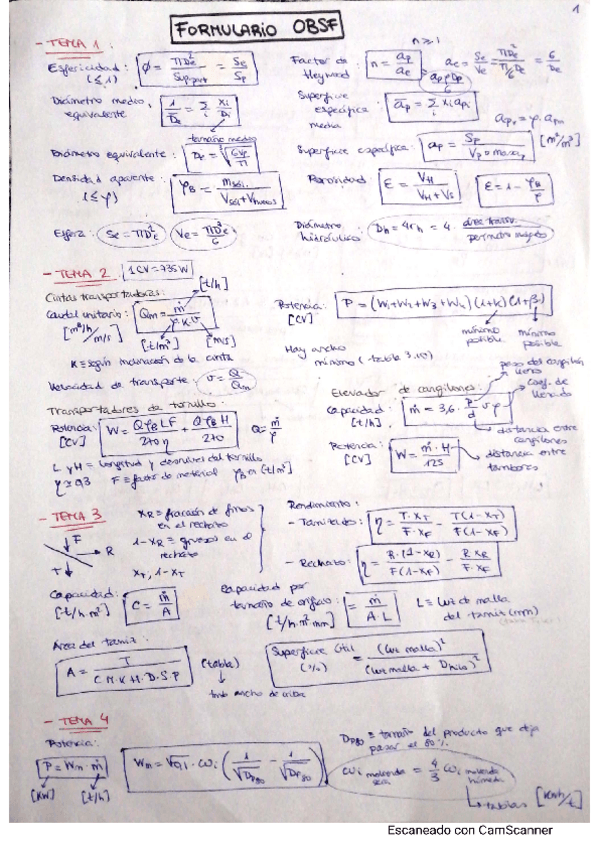 1
FORMULARIO OBSF
- TEMA 1:
Esfericidad: (≤1) φ = πDe² / Sp = Se / Sp
Factor de Heywood: n = ap / ae n ≥ 1 ae = Se / Ve = πDe² / (π/6 De³) = 6 / De
Diámetro medio equivalente: 1/De = Σi xi/Di
tamaño medio
Superficie específica media ap = Σi xi api
Diámetro equivalente: De = ∛(6Vp/π)
Superficie específica: ap = Sp / Vp o masap [m²/m³]
Densidad aparente (≤ρ) ρB = msól. / Vsól + Vhuecos
Porosidad: ε = VH / VH + VS ε = 1 - ρB/ρ
Esfera: Se = πDe² Ve = πDe³/6
Diámetro hidráulico: Dh = 4rh = 4 · área transv. / perímetro mojado
- TEMA 2 1CV = 735W
Cintas transportadoras: [t/h]
Caudal unitario: Qm = ṁ / ρ·K·v
[m³/h / m/s] [t/m³] [m/s]
K ≡ según inclinación de la cinta
Potencia: [CV] P = (W1+W2+W3+W4)(1+K)(1+β)
mínimo posible mínimo posible
Hay ancho mínimo (tabla 3.10)
Velocidad de transporte: v = Q / Qm
Transportadores de tornillo:
Potencia: [CV] W = QρB LF / 270η + QρB H / 270 Q = ṁ / ρ
L y H = longitud y desnivel del tornillo
η ≃ 0,3 F = factor de material ρB = (t/m³)
Elevador de cangilones: peso del cangilón lleno
Capacidad: [t/h] ṁ = 3,6 · P/d v φ Coef. de llenado
distancia entre cangilones
Potencia: [CV] W = ṁ·H / 125 distancia entre tambores
- TEMA 3
F R T
xR = fracción de finos en el rechazo
1-xR = gruesos en el rechazo
xT, 1-xT
Rendimiento:
- Tamizado: η = T·xT / F·xF - T(1-xT) / F(1-xF)
- Rechazo: η = R·(1-xR) / F(1-xF) - R xR / F·xF
Capacidad: [t/h·m²] C = ṁ / A
Capacidad por tamaño de orificio: [t/h·m²·mm] = ṁ / A L L ≡ luz de malla del tamiz (mm)
Área del tamiz: A = T / C·M·K·H·D·S·P (tabla)
Superficie útil (%) = (luz malla)² / (luz malla + Dhilo)²
- TEMA 4
Potencia: P = Wm · ṁ
[KW] [t/h]
Wm = √0,1 · ωi (1/√Dp80 - 1/√DF80)
Dp80 ≡ tamaño del producto que deja pasar el 80%
ωi molienda seca = 4/3 ωi molienda húmeda
tablas [kWh/t]
Escaneado con CamScanner